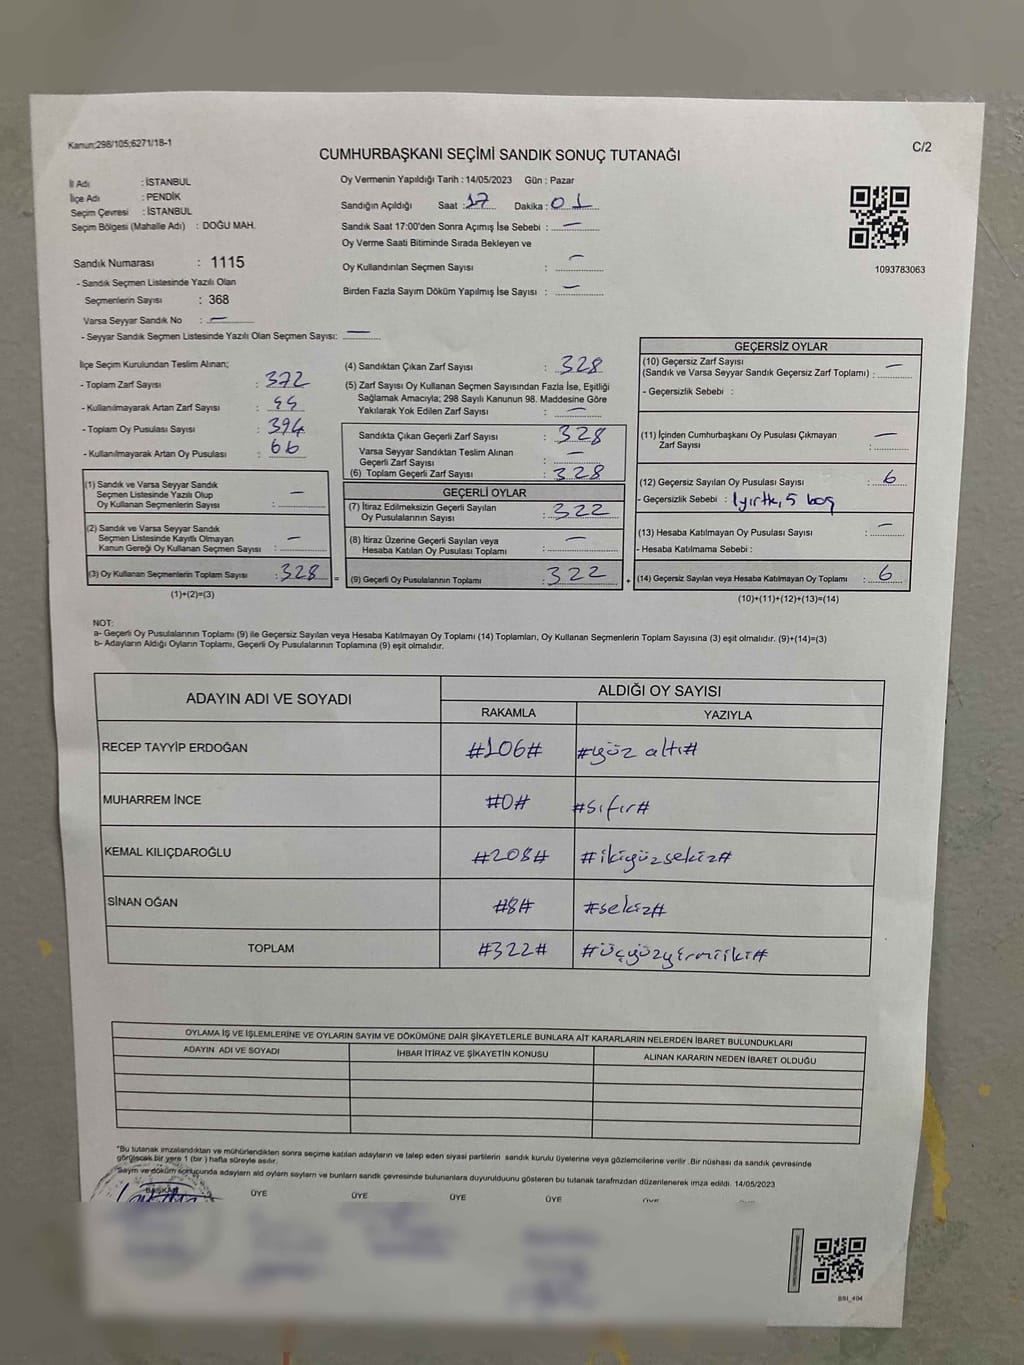 Kanun;298/105;6271/18-1
C/2
CUMHURBAŞKANI SEÇİMİ SANDIK SONUÇ TUTANAĞI
İl Adı : İSTANBUL
İlçe Adı : PENDİK
Seçim Çevresi : İSTANBUL
Seçim Bölgesi (Mahalle Adı) : DOĞU MAH.
Sandık Numarası : 1115
- Sandık Seçmen Listesinde Yazılı Olan
Seçmenlerin Sayısı : 368
Varsa Seyyar Sandık No : —
- Seyyar Sandık Seçmen Listesinde Yazılı Olan Seçmen Sayısı: —
Oy Vermenin Yapıldığı Tarih : 14/05/2023 Gün : Pazar
Sandığın Açıldığı Saat : 17 Dakika : 01
Sandık Saat 17:00'den Sonra Açımış İse Sebebi : —
Oy Verme Saati Bitiminde Sırada Bekleyen ve
Oy Kullandırılan Seçmen Sayısı : —
Birden Fazla Sayım Döküm Yapılmış İse Sayısı : —
1093783063
İlçe Seçim Kurulundan Teslim Alınan;
- Toplam Zarf Sayısı : 372
- Kullanılmayarak Artan Zarf Sayısı :
- Toplam Oy Pusulası Sayısı : 394
- Kullanılmayarak Artan Oy Pusulası : 66
(1) Sandık ve Varsa Seyyar Sandık
Seçmen Listesinde Yazılı Olup
Oy Kullanan Seçmenlerin Sayısı : —
(2) Sandık ve Varsa Seyyar Sandık
Seçmen Listesinde Kayıtlı Olmayan
Kanun Gereği Oy Kullanan Seçmen Sayısı : —
(3) Oy Kullanan Seçmenlerin Toplam Sayısı : 328 =
(1)+(2)=(3)
(4) Sandıktan Çıkan Zarf Sayısı : 328
(5) Zarf Sayısı Oy Kullanan Seçmen Sayısından Fazla İse, Eşitliği
Sağlamak Amacıyla; 298 Sayılı Kanunun 98. Maddesine Göre
Yakılarak Yok Edilen Zarf Sayısı : —
Sandıkta Çıkan Geçerli Zarf Sayısı : 328
Varsa Seyyar Sandıktan Teslim Alınan
Geçerli Zarf Sayısı : —
(6) Toplam Geçerli Zarf Sayısı : 328
GEÇERLİ OYLAR
(7) İtiraz Edilmeksizin Geçerli Sayılan
Oy Pusulalarının Sayısı : 322
(8) İtiraz Üzerine Geçerli Sayılan veya
Hesaba Katılan Oy Pusulası Toplamı : —
(9) Geçerli Oy Pusulalarının Toplamı : 322 +
GEÇERSİZ OYLAR
(10) Geçersiz Zarf Sayısı
(Sandık ve Varsa Seyyar Sandık Geçersiz Zarf Toplamı) : —
- Geçersizlik Sebebi :
(11) İçinden Cumhurbaşkanı Oy Pusulası Çıkmayan
Zarf Sayısı : —
(12) Geçersiz Sayılan Oy Pusulası Sayısı : 6
- Geçersizlik Sebebi : 1 yırtık, 5 boş
(13) Hesaba Katılmayan Oy Pusulası Sayısı : —
- Hesaba Katılmama Sebebi :
(14) Geçersiz Sayılan veya Hesaba Katılmayan Oy Toplamı : 6
(10)+(11)+(12)+(13)=(14)
NOT:
a- Geçerli Oy Pusulalarının Toplamı (9) ile Geçersiz Sayılan veya Hesaba Katılmayan Oy Toplamı (14) Toplamları, Oy Kullanan Seçmenlerin Toplam Sayısına (3) eşit olmalıdır. (9)+(14)=(3)
b- Adayların Aldığı Oyların Toplamı, Geçerli Oy Pusulalarının Toplamına (9) eşit olmalıdır.
ADAYIN ADI VE SOYADI ALDIĞI OY SAYISI
RAKAMLA YAZIYLA
RECEP TAYYİP ERDOĞAN #106# #yüz altı#
MUHARREM İNCE #0# #sıfır#
KEMAL KILIÇDAROĞLU #208# #ikiyüzsekiz#
SİNAN OĞAN #8# #sekiz#
TOPLAM #322# #üçyüzyirmiiki#
OYLAMA İŞ VE İŞLEMLERİNE VE OYLARIN SAYIM VE DÖKÜMÜNE DAİR ŞİKAYETLERLE BUNLARA AİT KARARLARIN NELERDEN İBARET BULUNDUKLARI
ADAYIN ADI VE SOYADI İHBAR İTİRAZ VE ŞİKAYETİN KONUSU ALINAN KARARIN NEDEN İBARET OLDUĞU
*Bu tutanak imzalandıktan ve mühürlendikten sonra seçime katılan adayların ve talep eden siyasi partilerin sandık kurulu üyelerine veya gözlemcilerine verilir .Bir nüshası da sandık çevresinde
görülecek bir yere 1 (bir ) hafta süreyle asılır.
Sayım ve döküm sonucunda adayların aldı oyların sayların ve bunların sandık çevresinde bulunanlara duyurulduunu gösteren bu tutanak tarafmzdan düzenlenerek imza edildi. 14/05/2023
BAŞKAN ÜYE ÜYE ÜYE ÜYE ÜYE
BSI_404